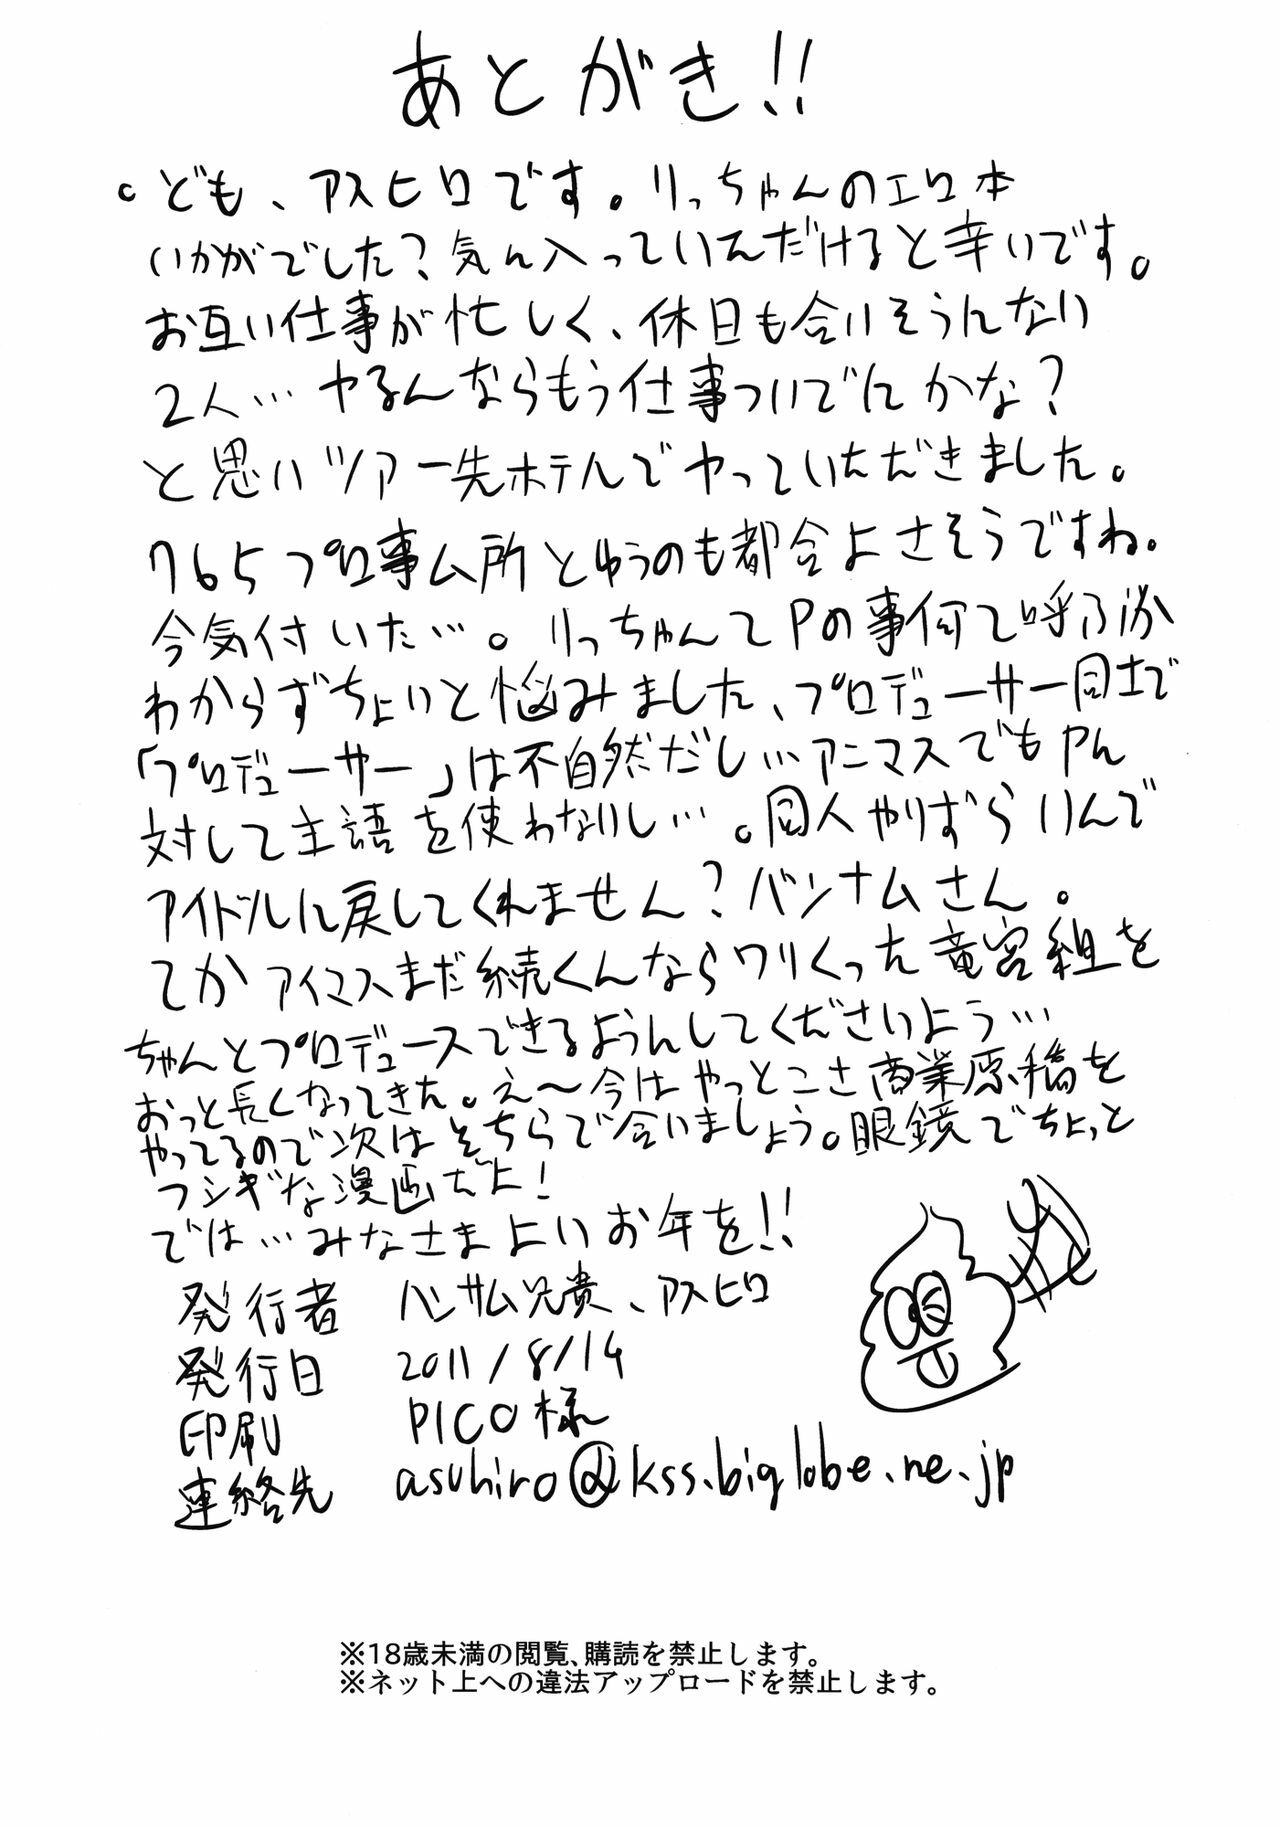 あとがき!!
。ども、アスヒロです。りっちゃんのエロ本
いかがでした?気に入っていただけると幸いです。
お互い仕事が忙しく、休日も合いそうにない
2人…ヤるんならもう仕事ついでにかな?
と思いツアー先ホテルでヤっていただきました。
765プロ事ム所とゆうのも都合よさそうですね。
今気付いた…。りっちゃんてPの事何て呼ぶか
わからずちょいと悩みました、プロデューサー同士で
「プロデューサー」は不自然だし…アニマスでもPに
対して主語を使わないし…。同人やりずらいんで
アイドルに戻してくれません?バンナムさん。
てかアイマスまだ続くんならワリくった竜宮組を
ちゃんとプロデュースできるようにしてくださいよう…
おっと長くなってきた。え〜今はやっとこさ商業原稿を
やってるので次はそちらで合いましょう。眼鏡でちょっと
フシギな漫画だよ!
では…みなさまよいお年を!!
発行者 ハンサム兄貴、アスヒロ
発行日 2011/8/14
印刷 PICO様
連絡先 asuhiro@kss.biglobe.ne.jp
※18歳未満の閲覧、購読を禁止します。
※ネット上への違法アップロードを禁止します。